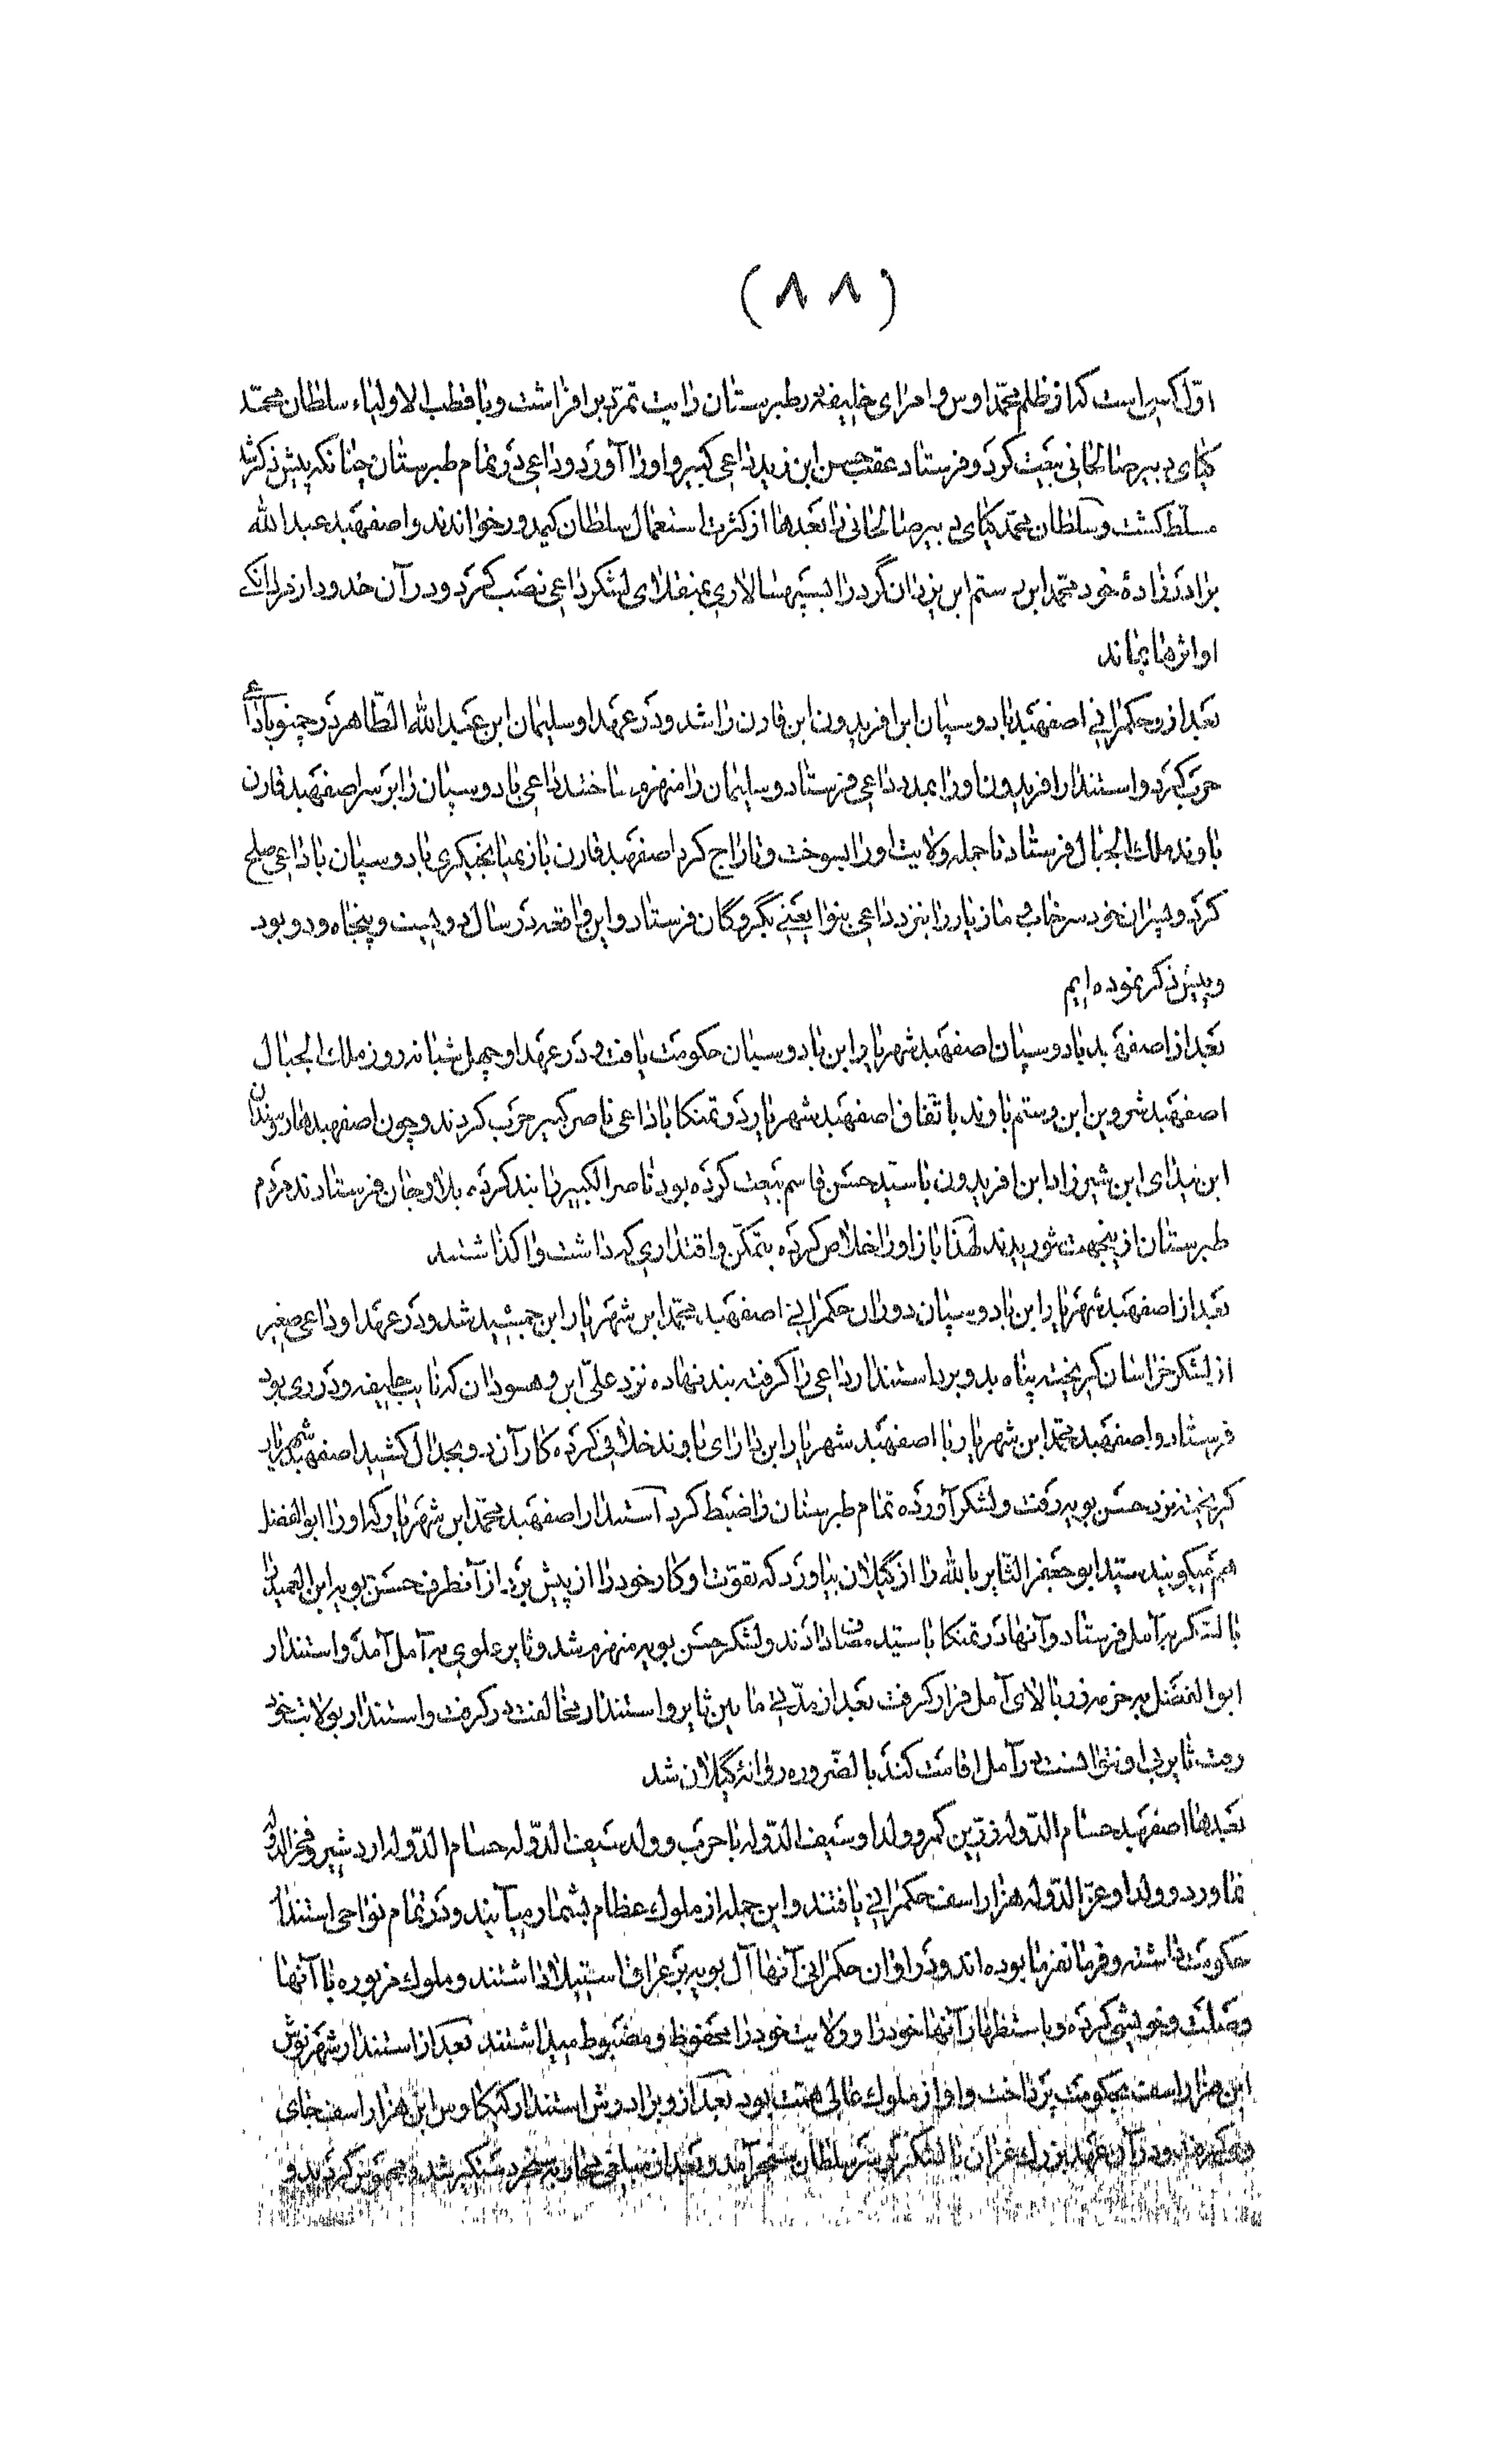 (۸۸)
اوّل کسی است که از ظلم محمّد اوس و امرای خلیفه در طبرستان رایت تمرّد بر افراشت و با قطب الاولیاء سلطان محمّد
کیای دبیر صالحانی بیعت کرد و فرستاد عقب حسن ابن زید داعی کبیر و او را آورد و داعی در تمام طبرستان چنانکه پیش ذکر شد
مسلّط گشت و سلطان محمّد کیای دبیر صالحانی را بعدها از کثرت استعمال سلطان کیمدور خواندند و اصفهبد عبدالله
برادرزادهٔ خود محمّد ابن رستم ابن یزدان گرد را بسپهسالاری لشکر داعی نصب کرد و در آن حدود از
او اثرها بماند
بعد از و حکمرانی اصفهبد بادوسپان ابن افریدون ابن قارن را شد و در عهد او سلیمان ابن عبدالله الطّاهر در چمنو با داعی
حرب کرد و استندار افریدون را بمدد داعی فرستاد و سلیمان را منهزم ساختند داعی بادوسپان را بر سر اصفهبد قارن
باوند ملک الجبال فرستاد تا جمله ولایت او را بسوخت و تاراج کرد اصفهبد قارن باز بمیانجیگری بادوسپان با داعی صلح
کرد و پسران خود سرخاب و مازیار را بنزد داعی بنوا یعنی بگروگان فرستاد و این واقعه در سال دویست و پنجاه و دو بود
و پیش ذکر نموده ایم
بعد از اصفهبد بادوسپان اصفهبد شهریار ابن بادوسپان حکومت یافت و در عهد او چهل شبانه روز ملک الجبال
اصفهبد شروین ابن رستم باوند باتّفاق اصفهبد شهریار در تمنکا با داعی ناصر کبیر حرب کردند و چون اصفهبد هارسوندان
ابن تیدای ابن شیرزاد ابن افریدون با سیّد حسن قاسم بیعت کرده بود ناصر الکبیر را بند کرده بلارجان فرستادند مردم
طبرستان از ینجهت شوریدند لهذا باز او را خلاص کرده بتمکّن و اقتداری که داشت واگذاشتند
بعد از اصفهبد شهریار ابن بادوسپان دوران حکمرانی اصفهبد محمّد ابن شهریار ابن جمشید شد و در عهد او داعی صغیر
از لشکر خراسان گریخته پناه بدو برد استندار داعی را گرفته بند نهاده نزد علیّ ابن وهسودان که نایب خلیفه و در ری بود
فرستاد و اصفهبد محمّد ابن شهریار با اصفهبد شهریار ابن دارای باوند خلافی کرده کار آنرد و بجدال کشید اصفهبد شهریار
گریخته نزد حسن بویه رفت و لشکر آورده تمام طبرستان را ضبط کرد استندار اصفهبد محمّد ابن شهریار که او را ابوالفضل
هم میگویند سیّد ابو جعفر الثّایر بالله را از گیلان بیاورد که بقوّت او کار خود را از پیش برد از آنطرف حسن بویه ابن العمید را
با لشکر بر آمل فرستاد و آنها در تمنکا با سیّد مصاف دادند و لشکر حسن بویه منهزم شد و ثایر علوی به آمل آمد و استندار
ابوالفضل بر خزمه رز بالای آمل قرار گرفت بعد از مدّتی ما بین ثایر و استندار مخالفت در گرفت و استندار بولایت خود
رفت ثایر بی او نتوانست در آمل اقامت کند بالضّروره روانهٔ گیلان شد
بعدها اصفهبد حسام الدّوله زرّین کمر و ولد او سیف الدّوله با حرب و ولد سیف الدّوله حسام الدّوله اردشیر و فخرالدّوله
نماورد و ولد او عزّ الدّوله هزاراسف حکمرانی یافتند و این جمله از ملوک عظام بشمار میآیند و در تمام نواحی استندار
حکومت داشته و فرمانفرما بوده اند و در اوان حکمرانی آنها آل بویه بر عراق استیلا داشتند و ملوک مزبوره با آنها
وصلت و خویشی کرده و باستظهار آنها خود را و ولایت خود را محفوظ و مضبوط میداشتند بعد از استندار شهرنوش
ابن هزاراسف بحکومت پرداخت و او از ملوک عالی همّت بود بعد از و برادرش استندار کیکاوس ابن هزاراسف جای
وی گرفت و در آن عهد بزرگ غزان با لشکر بر سر سلطان سنجر آمد و بعد از سنجر دستگیر شد و